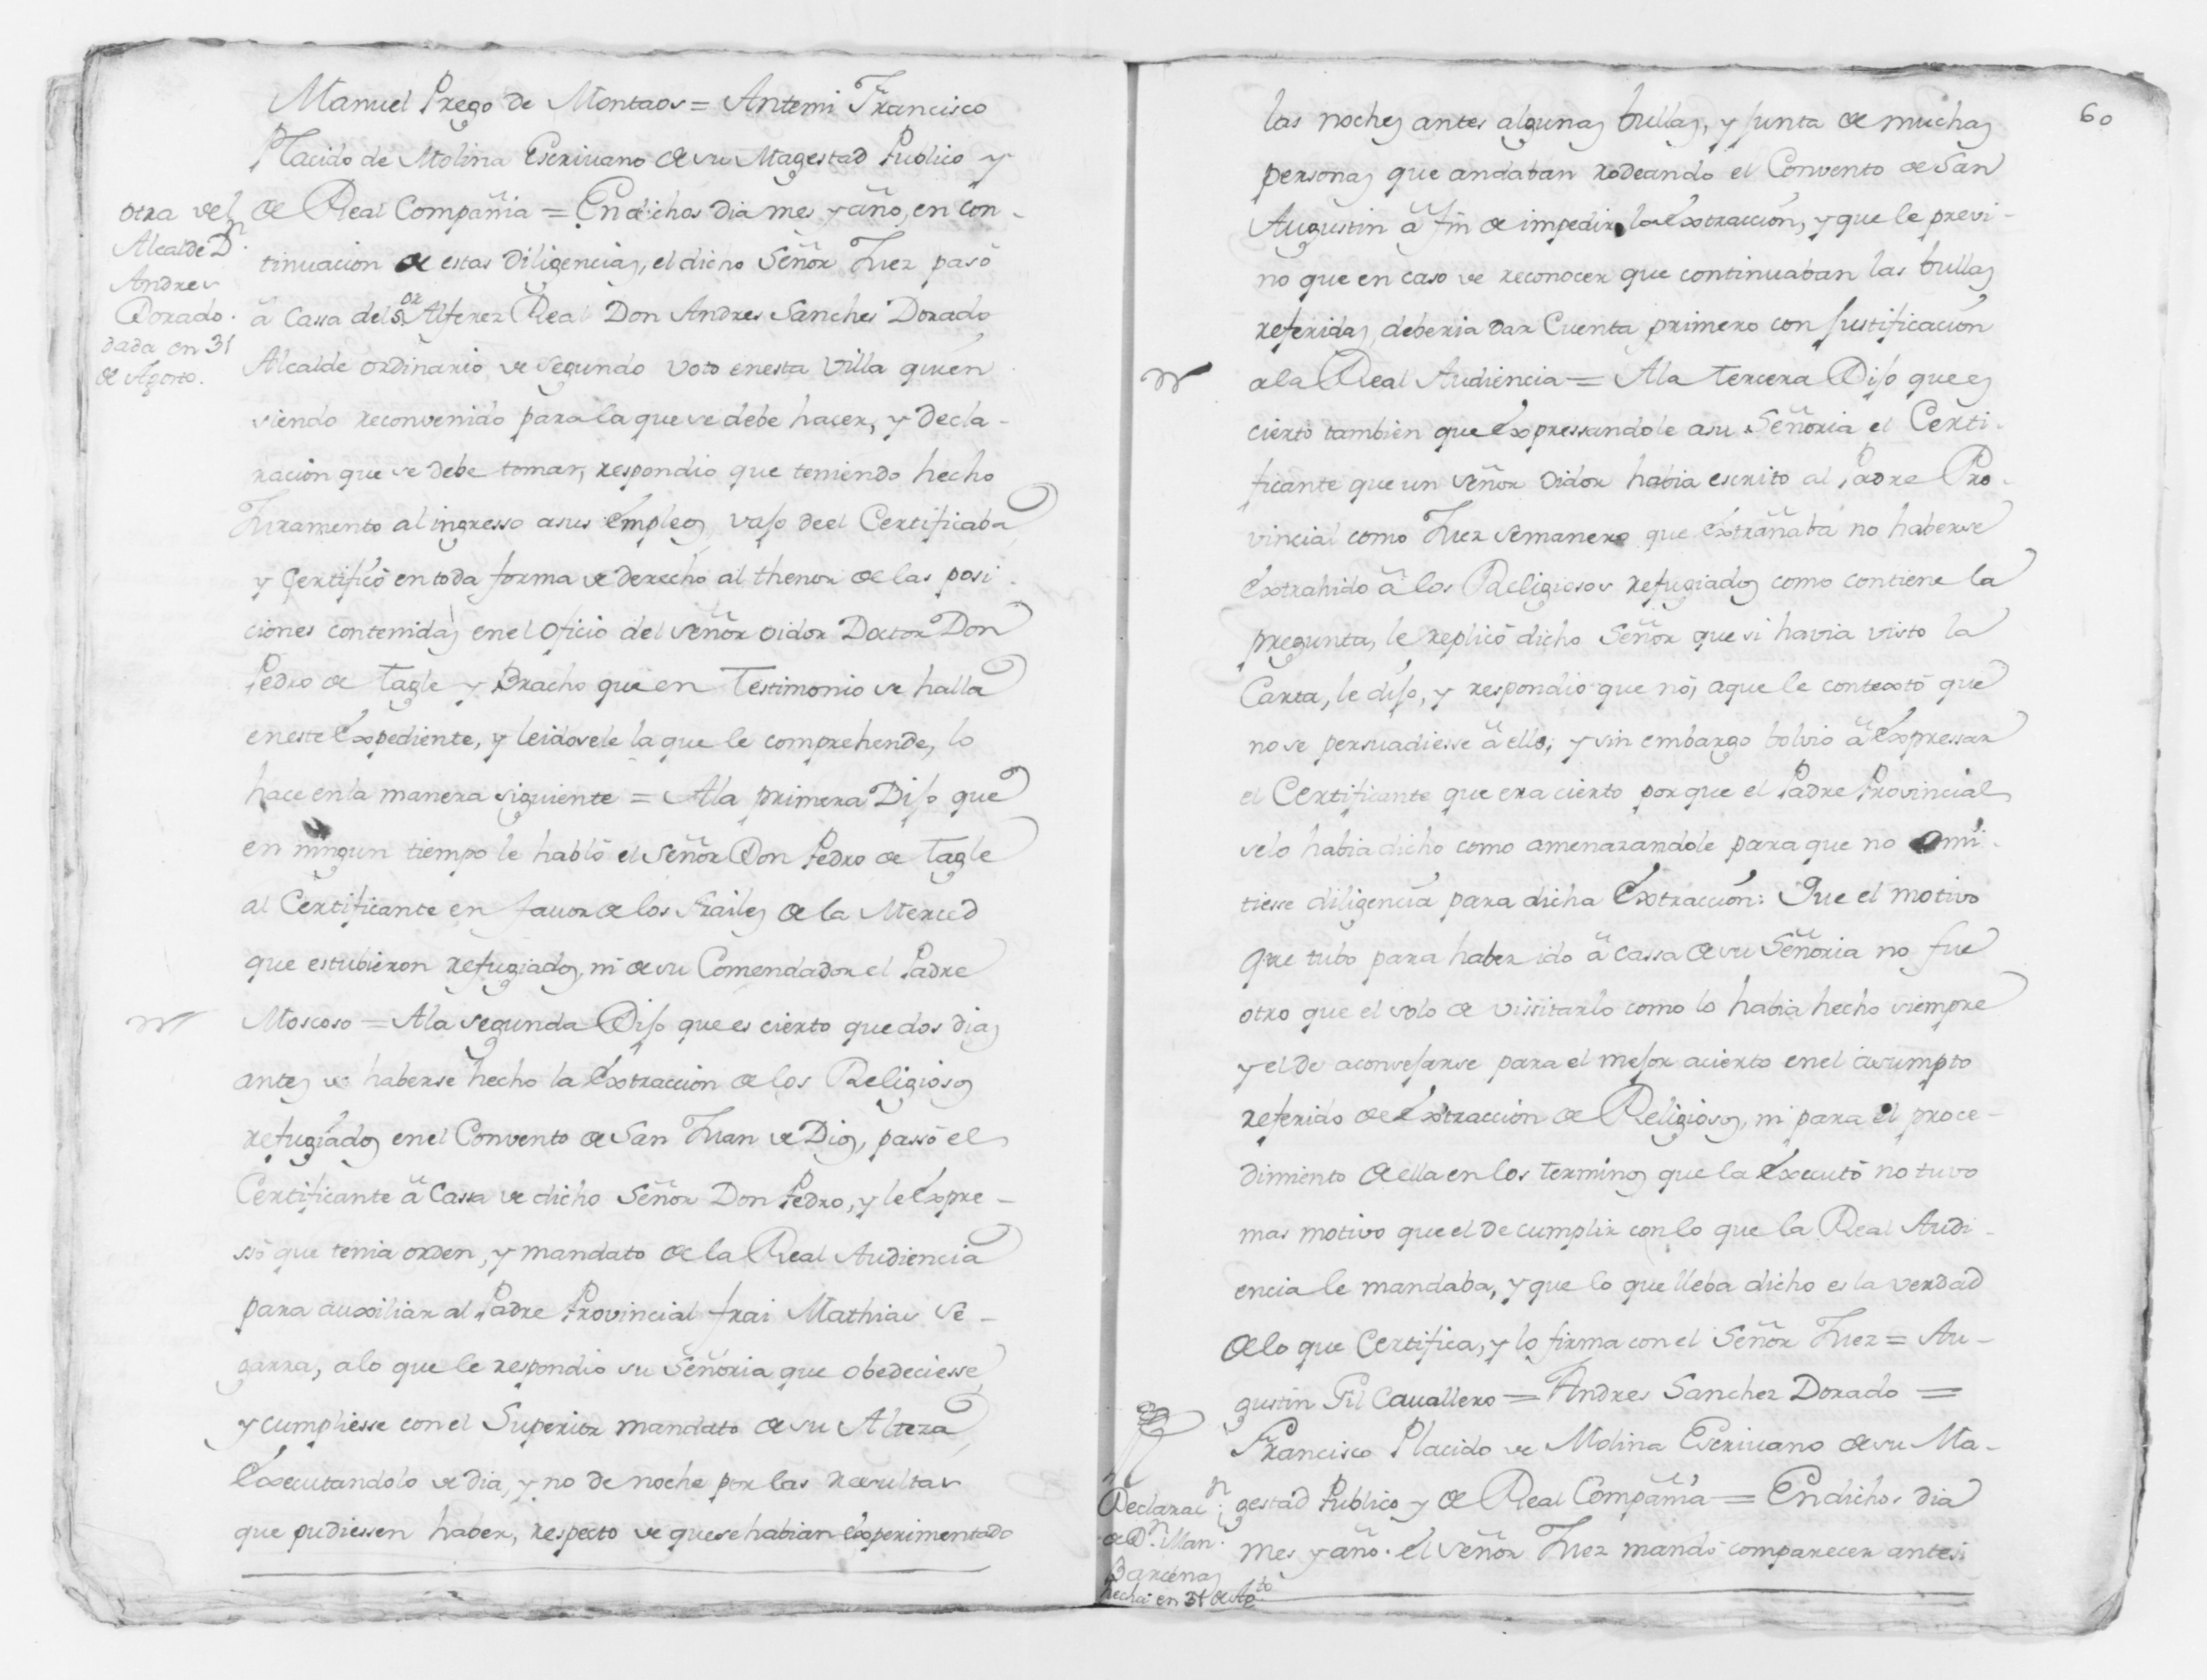 Manuel Prego de Montaos = Antemi Francisco
Placido de Molina Escriuano de su Magestad Publico y
de Real Compañia = En dichos dia mes y año, en con-
tinuacion de estas Diligencias, el dicho Señor Juez pasó
â Cassa del Sor. Alferez Real Don Andres Sanches Dorado
Alcalde ordinario de segundo voto enesta Villa quien
siendo reconvenido para la que se debe hacer, y Decla-
racion que se debe tomar, respondio que teniendo hecho
Juramento al ingresso asus empleos, vajo deel Certificaba
y Certificó en toda forma de derecho al thenor de las posi-
ciones contenidas enel oficio del Señor oidor Doctor Don
Pedro de Tagle y Bracho que en Testimonio se halla
eneste Expediente, y leidosele la que le comprehende, lo
hace enla manera siguiente = Ala primera Dijo que
en ningun tiempo le habló el Señor Don Pedro de Tagle
al Certificante en favor de los Frailes de la Merced
que estubieron refugiados, ni de su Comendador el Padre
Moscoso = Ala segunda Dijo que es cierto que dos dias
antes de haberse hecho la Extraccion de los Religiosos
refugiados enel Convento de San Juan de Dios, passó el
Certificante â Cassa de dicho Señor Don Pedro, y le Expre-
ssó que tenia orden, y mandato de la Real Audiencia
para auxiliar al Padre Provincial frai Mathias Se-
garra, alo que le respondio su Señoria que obedeciesse,
y cumpliesse con el Superior mandato de su Alteza
Executandolo de dia, y no de noche por las resultas
que pudiessen haber, respecto de que se habian Experimentado
otra del
Alcalde Dn.
Andres
Dorado.
dada en 31
de Agosto.
60
las noches antes algunas bullas, y junta de muchas
personas que andaban rodeando el Convento de San
Augustin â fin de impedir la Extraccion, y que le previ-
no que en caso de reconocer que continuaban las bullas
referidas, deberia dar Cuenta primero con justificacion
ala Real Audiencia = Ala tercera Dijo que es
cierto tambien que Expressandole asu Señoria el Certi-
ficante que un Señor oidor habia escrito al Padre Pro-
vincial como Juez semanero que Extrañaba no haberse
Extrahido â los Religiosos refugiados como contiene la
pregunta, le replicó dicho Señor que si havia visto la
Carta, le dijo, y respondio que nó, aque le contextó que
no se persuadiesse â ello; y sin embargo bolvio â Expressar
el Certificante que era cierto por que el Padre Provincial
selo habia dicho como amenazandole para que no omi-
tiesse diligencia para dicha Extraccion: Que el motivo
que tubo para haber ido â cassa de su Señoria no fue
otro que el solo de vissitarlo como lo habia hecho siempre
y el de aconsejarse para el mejor acierto enel asumpto
referido de Extraccion de Religiosos, ni para el proce-
dimiento de ella en los terminos que la Executó no tuvo
mas motivo que el de cumplir con lo que la Real Audi-
encia le mandaba, y que lo que lleba dicho es la verdad
de lo que Certifica, y lo firma con el Señor Juez = Au-
gustin Gil Cavallero = Andres Sanchez Dorado =
Francisco Placido de Molina Escriuano de su Ma-
gestad Publico y de Real Compañia = En dichos dia
mes y año. el Señor Juez mandó comparecer antesi
Declaracn.
de Dn. Man.
Barcenas
hecha en 31 de Agto.